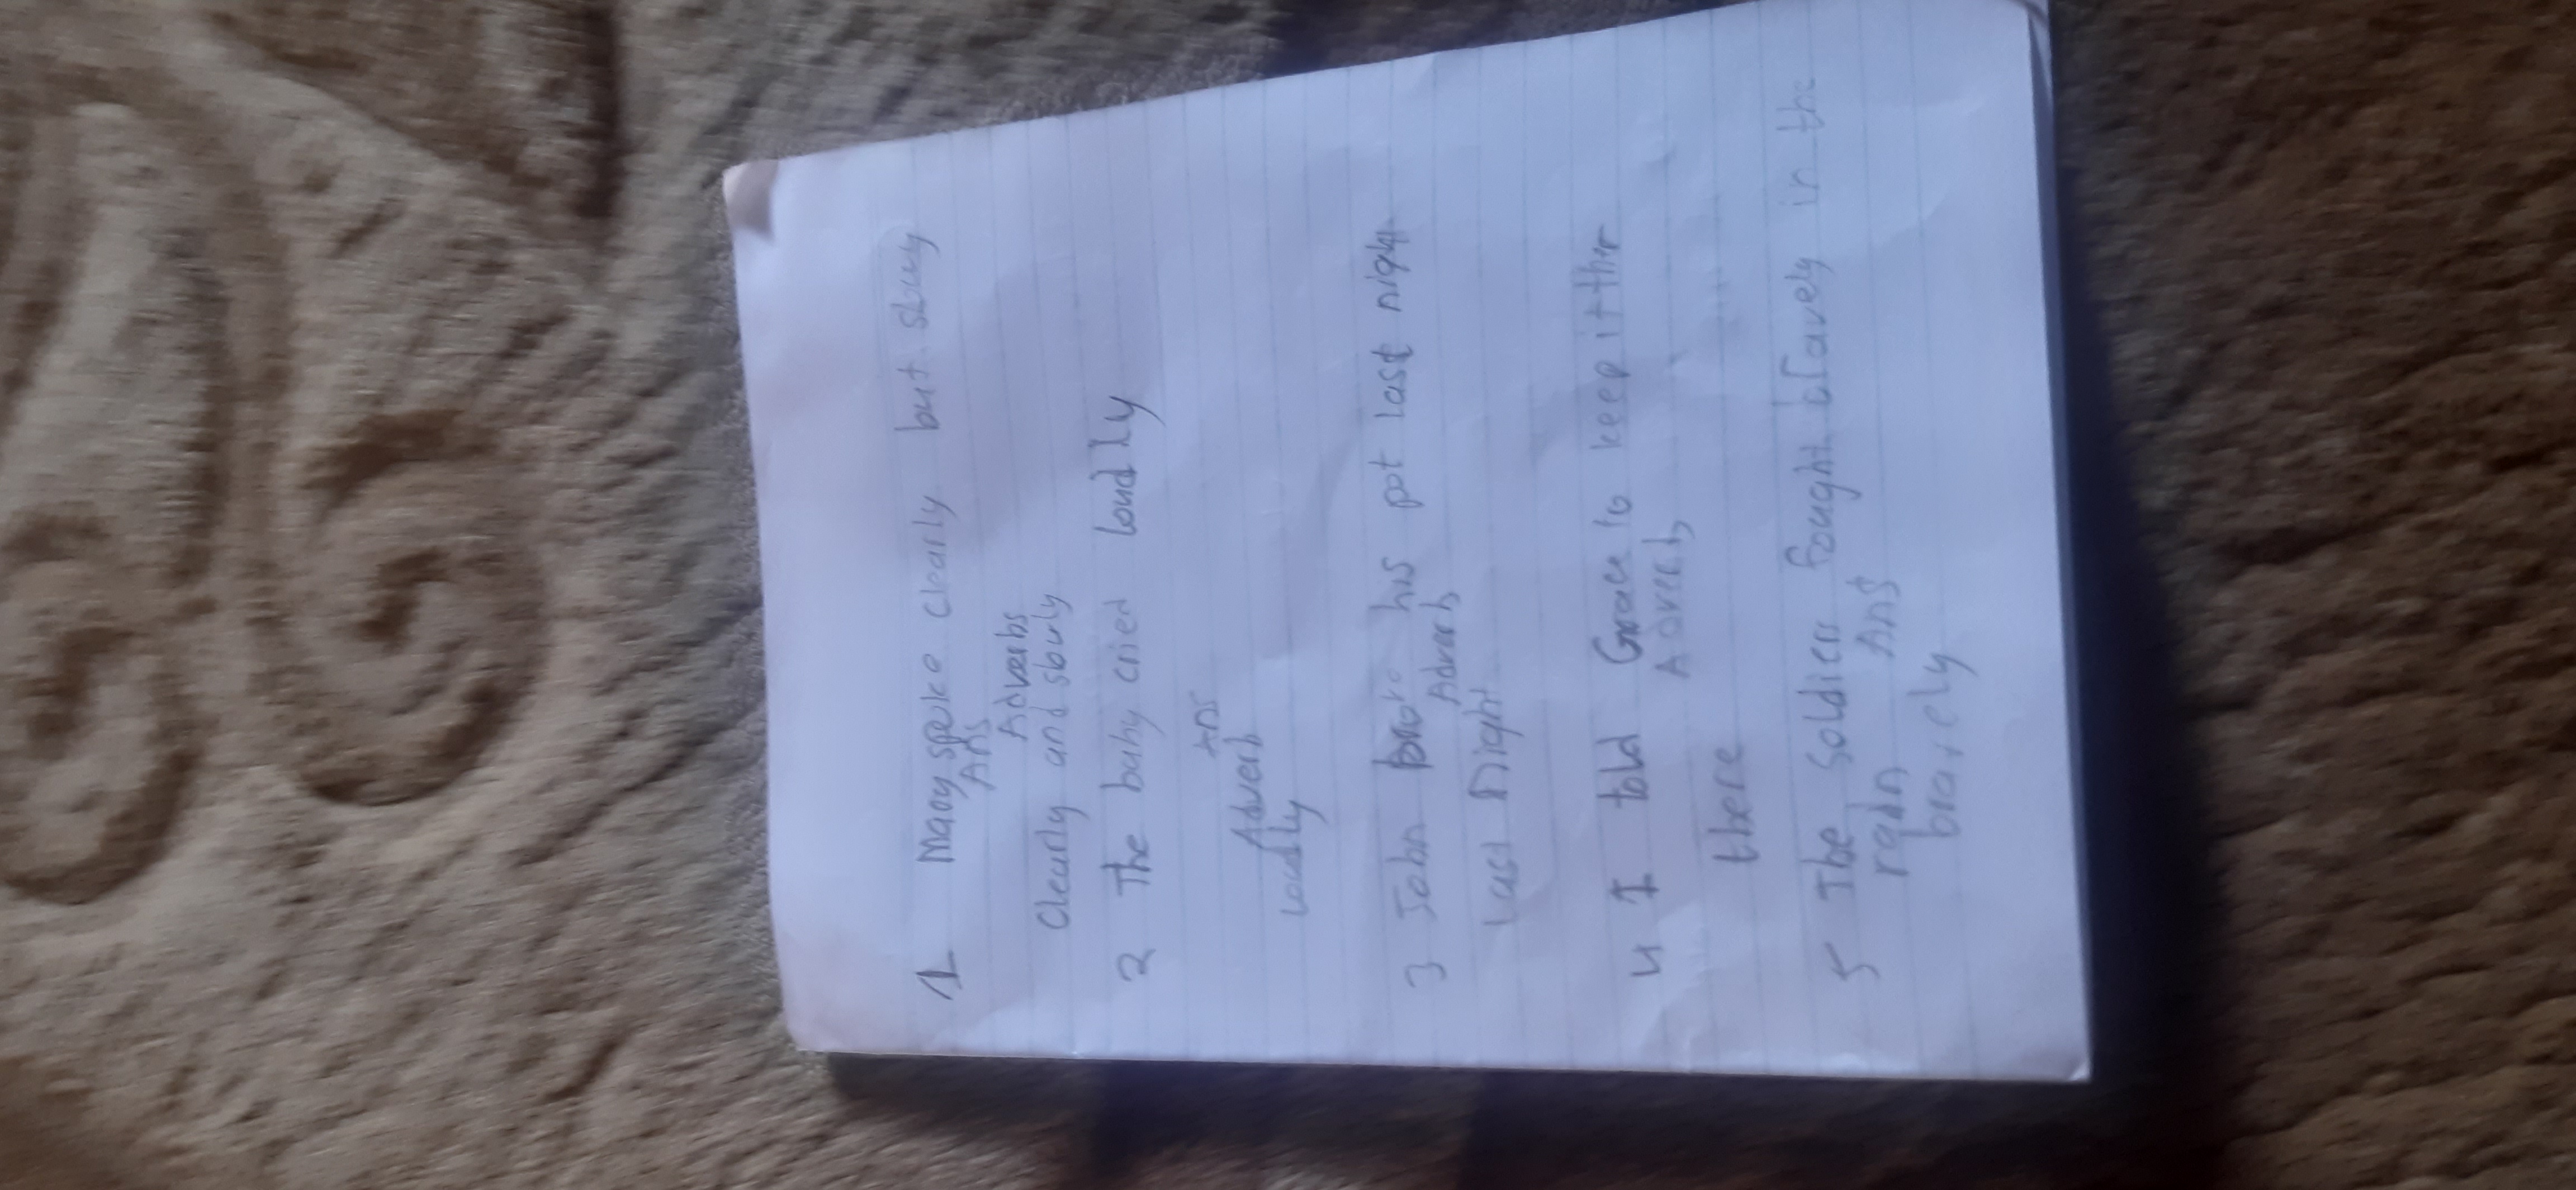 1 Many spoke clearly but slowly
Ans
Adverbs
Clearly and slowly
2 The baby cried loudly
Ans
Adverb
Loudly
3 John broke his pot last night
Adverb
Last night
4 I told Grace to keep it ther
Adverb
there
5 The soldiers fought bravely in the
rain Ans
bravely